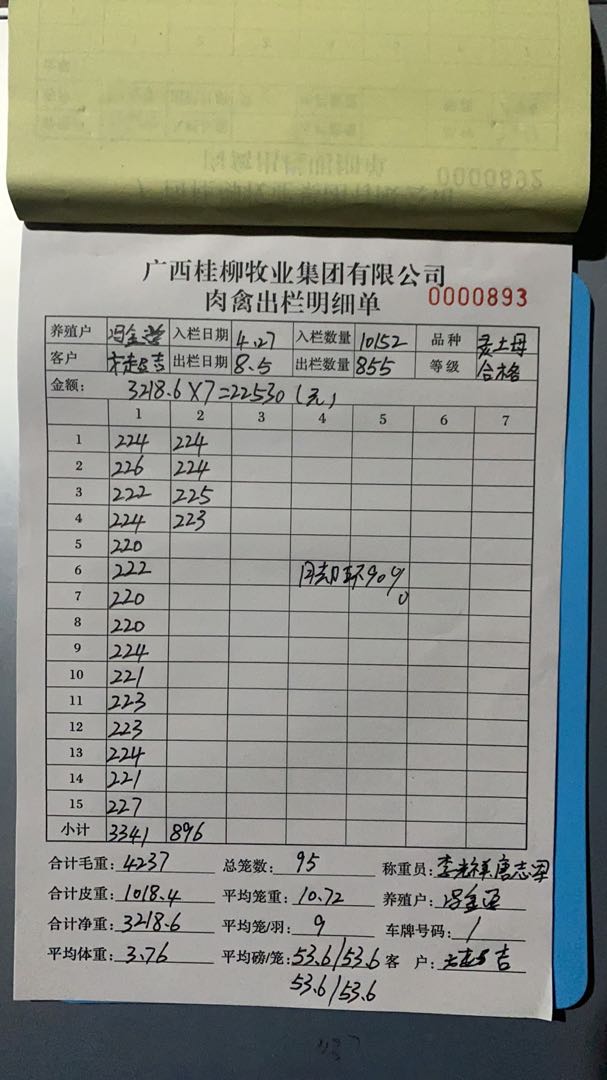 广西桂柳牧业集团有限公司
肉禽出栏明细单 0000893
养殖户 入栏日期 4.27 入栏数量 10152 品种 土母
客户 吉 出栏日期 8.5 出栏数量 855 等级 合格
金额: 3218.6×7=22530(元)
1 2 3 4 5 6 7
1 224 224
2 226 224
3 222 225
4 224 223
5 220
6 222 90%
7 220
8 220
9 224
10 221
11 223
12 223
13 224
14 221
15 227
小计 3341 896
合计毛重: 4237 总笼数: 95 称重员: 李光祥 唐志军
合计皮重: 1018.4 平均笼重: 10.72 养殖户: 冯金
合计净重: 3218.6 平均笼/羽: 9 车牌号码: /
平均体重: 3.76 平均磅/笼: 53.6/53.6 客 户: 吉
53.6/53.6
0000892